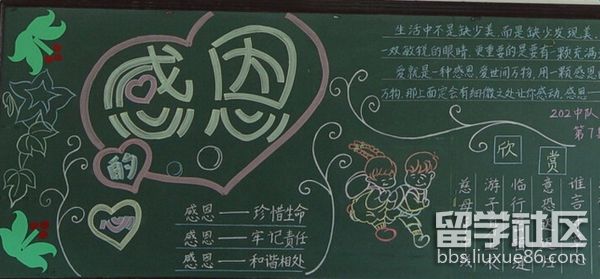 感恩
的
心
感恩——珍惜生命
感恩——牢记责任
感恩——和谐相处
生活中不是缺少美,而是缺少发现美
双敏锐的眼睛.更重要的是要有一颗充满
爱就是一种感恩,爱世间万物,用一颗感恩
万物,那上面定会有细微之处让你感动.感恩一
202中队
第7
欣赏
慈母
游子
临行
意恐
谁言
留学社区
bbs.liuxue86.com